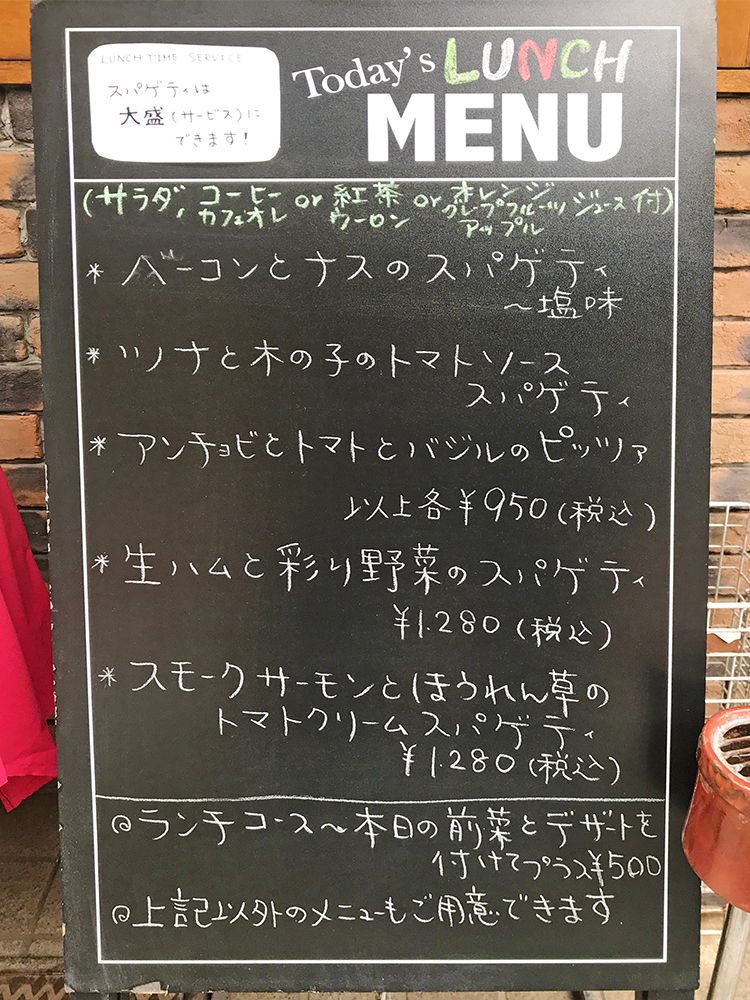 LUNCH TIME SERVICE
スパゲティは
大盛(サービス)に
できます!
Today's LUNCH
MENU
(サラダ, コーヒー or 紅茶 or オレンジ
カフェオレ ウーロン グレープフルーツ ジュース付)
アップル
* ベーコンとナスのスパゲティ
~塩味
* ツナと木の子のトマトソース
スパゲティ
* アンチョビとトマトとバジルのピッツァ
以上各¥950(税込)
* 生ハムと彩り野菜のスパゲティ
¥1.280(税込)
* スモークサーモンとほうれん草の
トマトクリームスパゲティ
¥1.280(税込)
◎ランチコース~本日の前菜とデザートを
付けてプラス¥500
◎上記以外のメニューもご用意できます